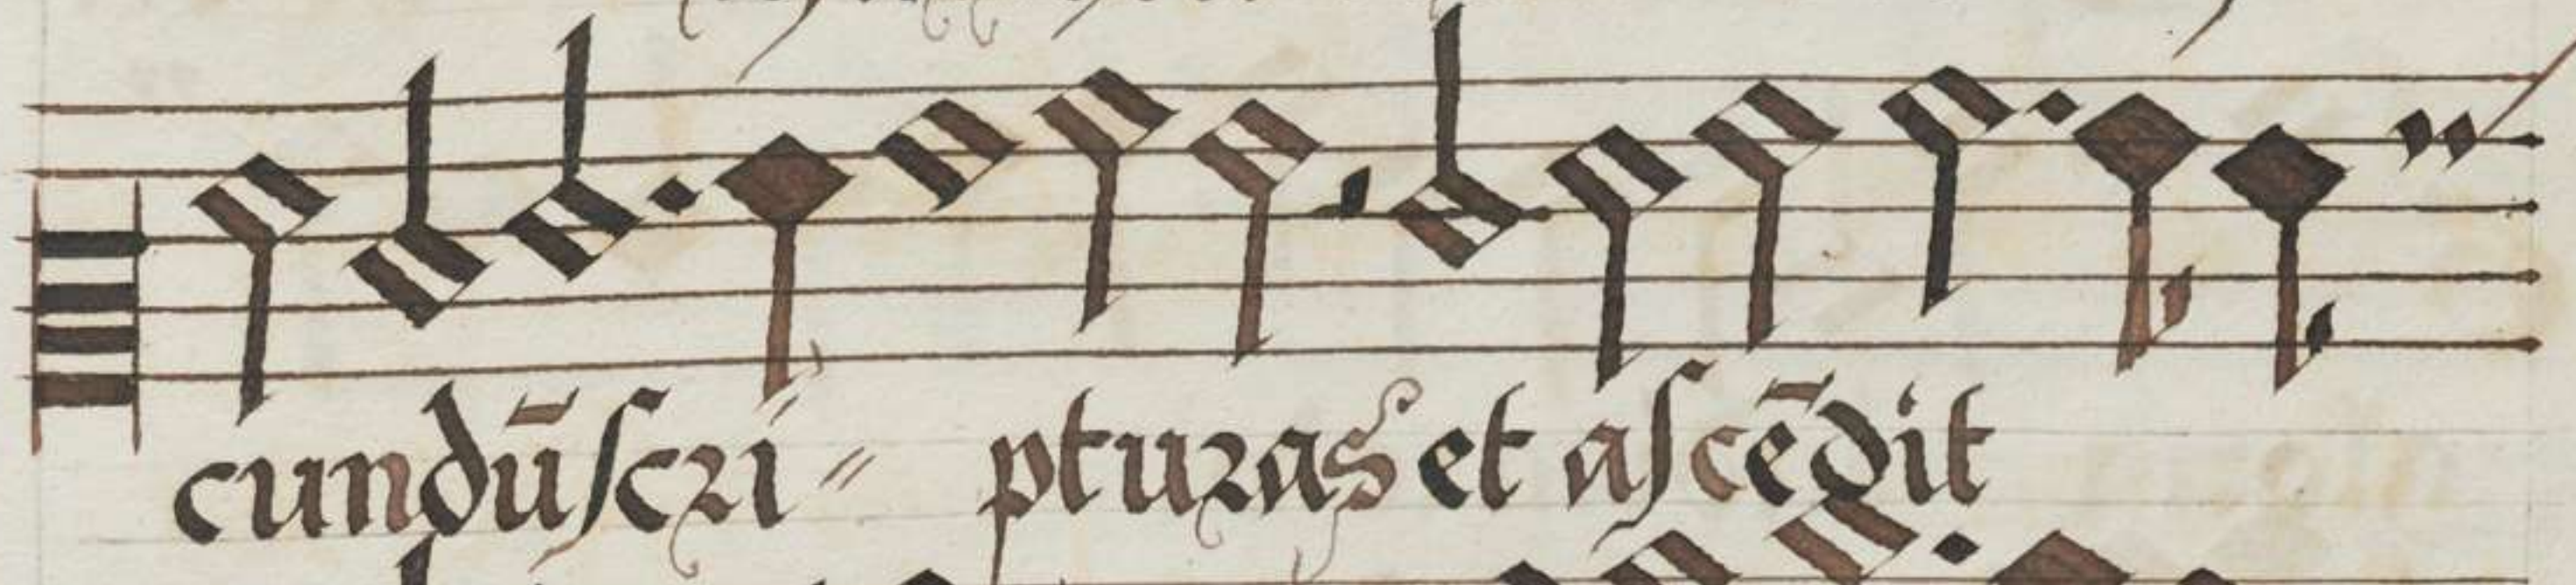 cundū scri〃 pturas et ascēdit